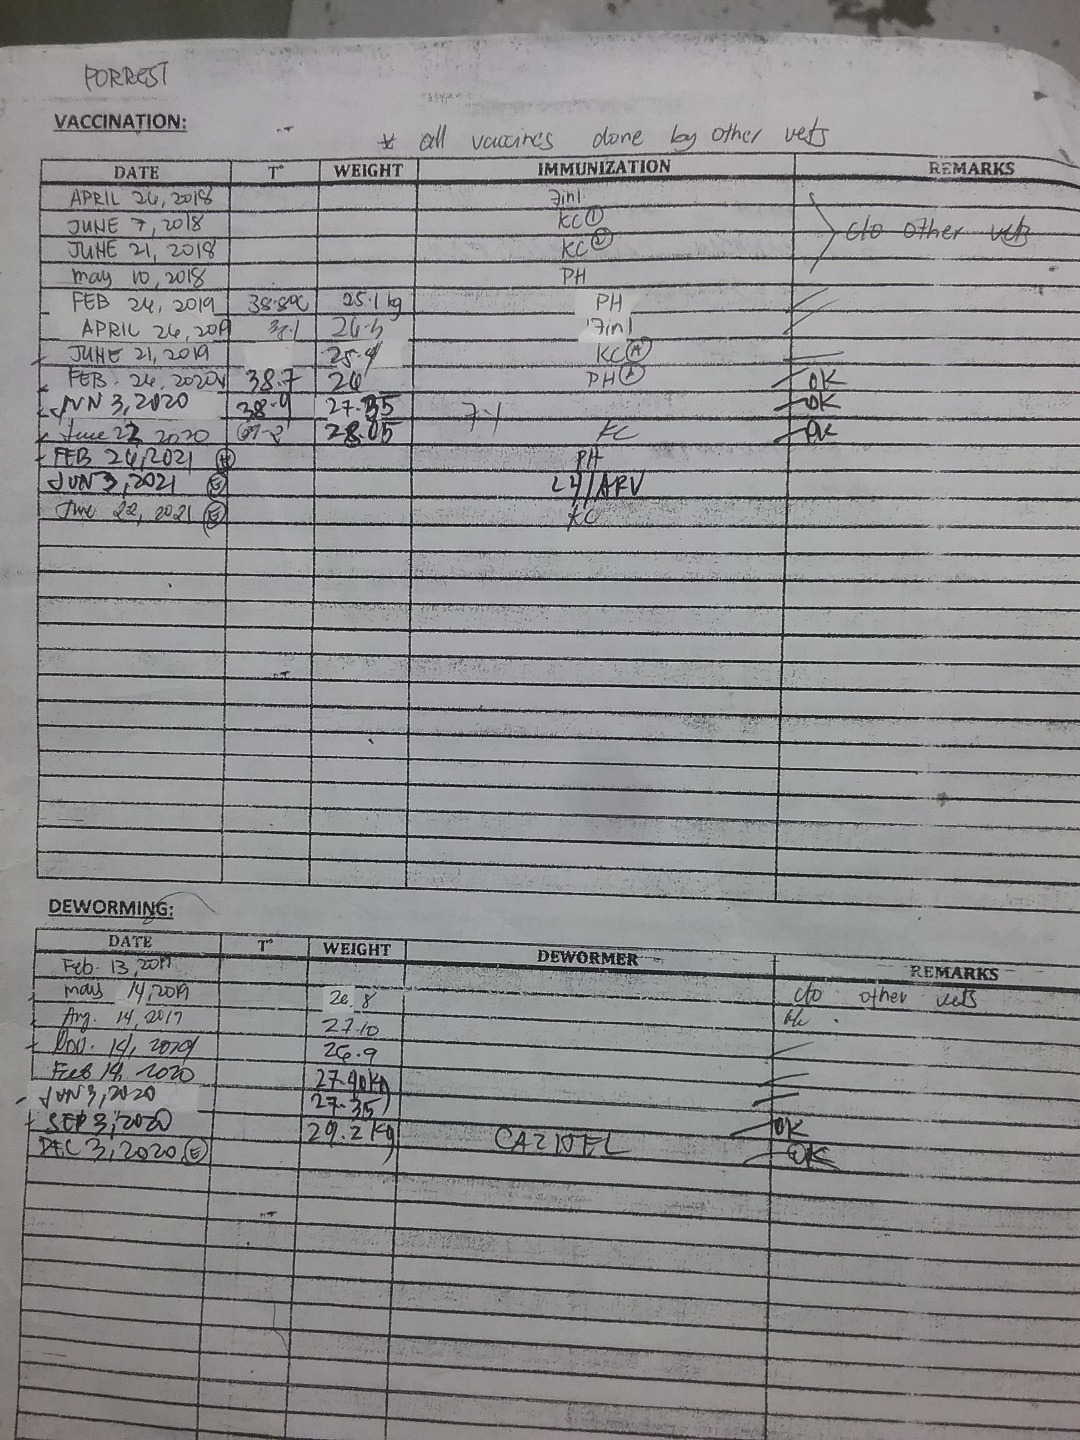 FORREST
VACCINATION:
* all vaccines done by other vets
DATE T° WEIGHT IMMUNIZATION REMARKS
APRIL 26, 2018 7in1
JUNE 7, 2018 KC ① c/o other vets
JUNE 21, 2018 KC ②
may 10, 2018 PH
FEB 24, 2019 38.8°C 25.1 kg PH
APRIL 26, 2019 7in1
JUNE 21, 2019 25.4 KC Ⓐ
FEB. 24, 2020 38.7 26 PH Ⓐ OK
JUN 3, 2020 38.9 27.35 7-1 OK
June 22 2020 28.05 KC OK
FEB 24, 2021 PH
JUN 3, 2021 Ⓔ L4/ARV
June 22, 2021 Ⓔ KC
DEWORMING:
DATE T° WEIGHT DEWORMER REMARKS
Feb. 13, 2019
may 14, 2019 26.8 c/o other vets
Aug. 14, 2019 27.10
Nov. 14, 2019 26.9
Feb 14, 2020 27.40kg
JUN 3, 2020 27.35
SEP 3, 2020 29.2 kg CAZITEL OK
DEC 3, 2020 Ⓔ OK